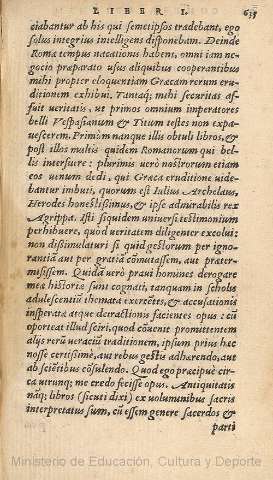 LIBER I. 635
ciabantur ab his qui semetipsos tradebant, ego
solus integrius intelligens disponebam. Deinde
Romæ tempus nacationis habens, omni iam ne-
gocio præparato usus aliquibus cooperantibus
mihi propter eloquentiam Græcam rerum eru-
ditionem exhibui. Tantaq; mihi securitas af-
fuit ueritatis, ut primos omnium imperatores
belli Vespasianum & Titum testes non expa-
uescerem. Primùm nanque illis obtuli libros, &
post illos multis quidem Romanorum qui bel-
lis interfuere: plurimis uerò nostrorum etiam
eos uenum dedi, qui Græca eruditione uide-
bantur imbuti, quorum est Iulius Archelaus,
Herodes honestißimus, & ipse admirabilis rex
Agrippa. Isti siquidem uniuersi testimonium
perhibuere, quòd ueritatem diligenter excolui:
non dissimulaturi si quid gestorum per igno-
rantiā aut per gratiā cōmutassem, aut præter-
misissem. Quidā uerò praui homines derogare
meæ historiæ sunt cognati, tanquam in scholis
adulescentiū themata exercētes, & accusationis
insperatæ atque detractionis facientes opus: cū
oporteat illud sciri, quod cōuenit promittentem
alijs rerū ueraciū traditionem, ipsum prius hæc
nosse certißimè, aut rebus gestis adhærendo, aut
ab sciētibus cōsulendo. Quod ego præcipuè cir-
ca utrunq; me credo fecisse opus. Antiquitatis
nāq; libros (sicuti dixi) ex uoluminibus sacris
interpretatus sum, cū essem genere sacerdos &
parti
Ministerio de Educación, Cultura y Deporte